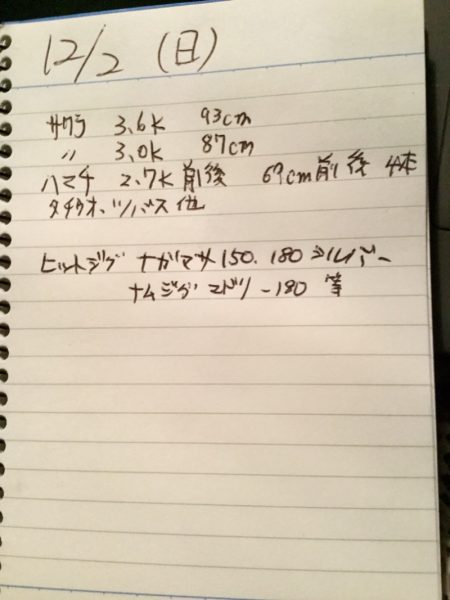 12/2 (日)
サワラ 3.6K 93cm
〃 3.0K 87cm
ハマチ 2.7K前後 69cm前後 4本
タチウオ、ツバス他
ヒットジグ ナガマサ150.180シルバー
ナムジグ ミドリ-180 等